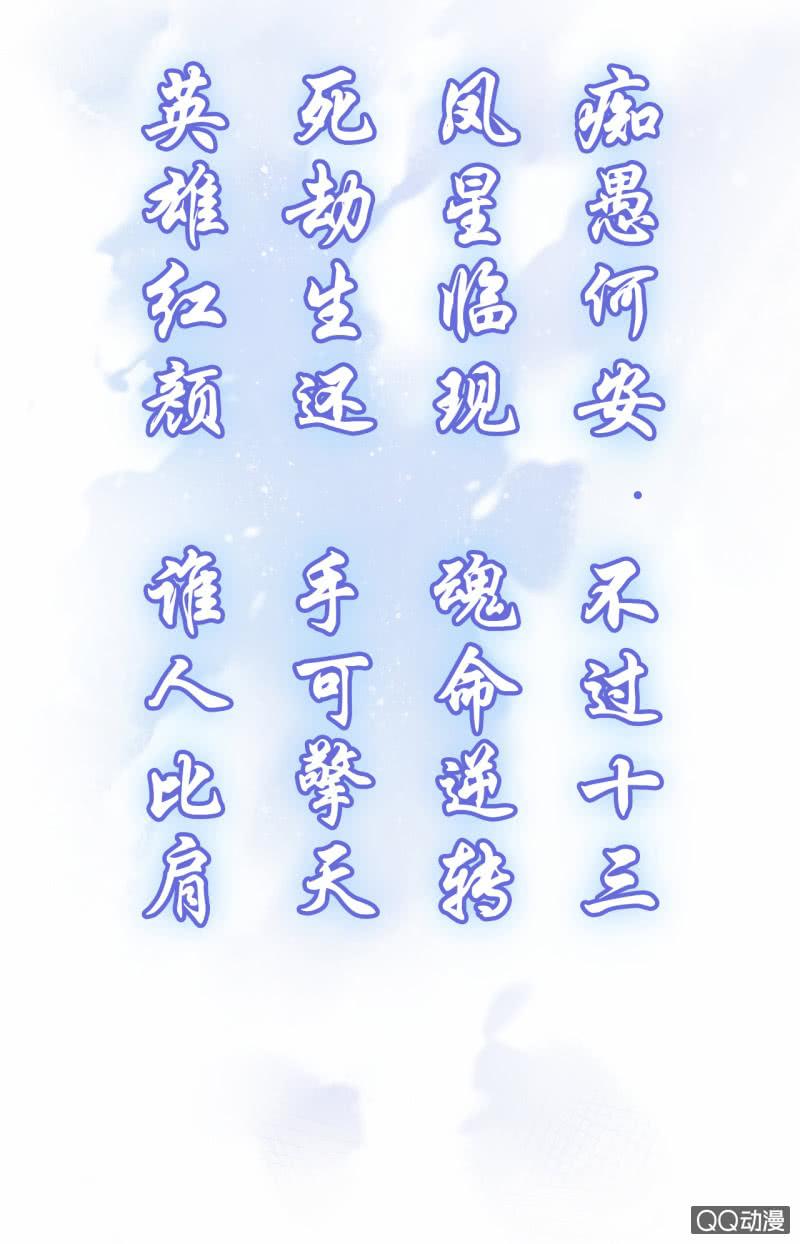 痴愚何安·不过十三
凤星临现 魂命逆转
死劫生还 手可擎天
英雄红颜 谁人比肩
QQ动漫